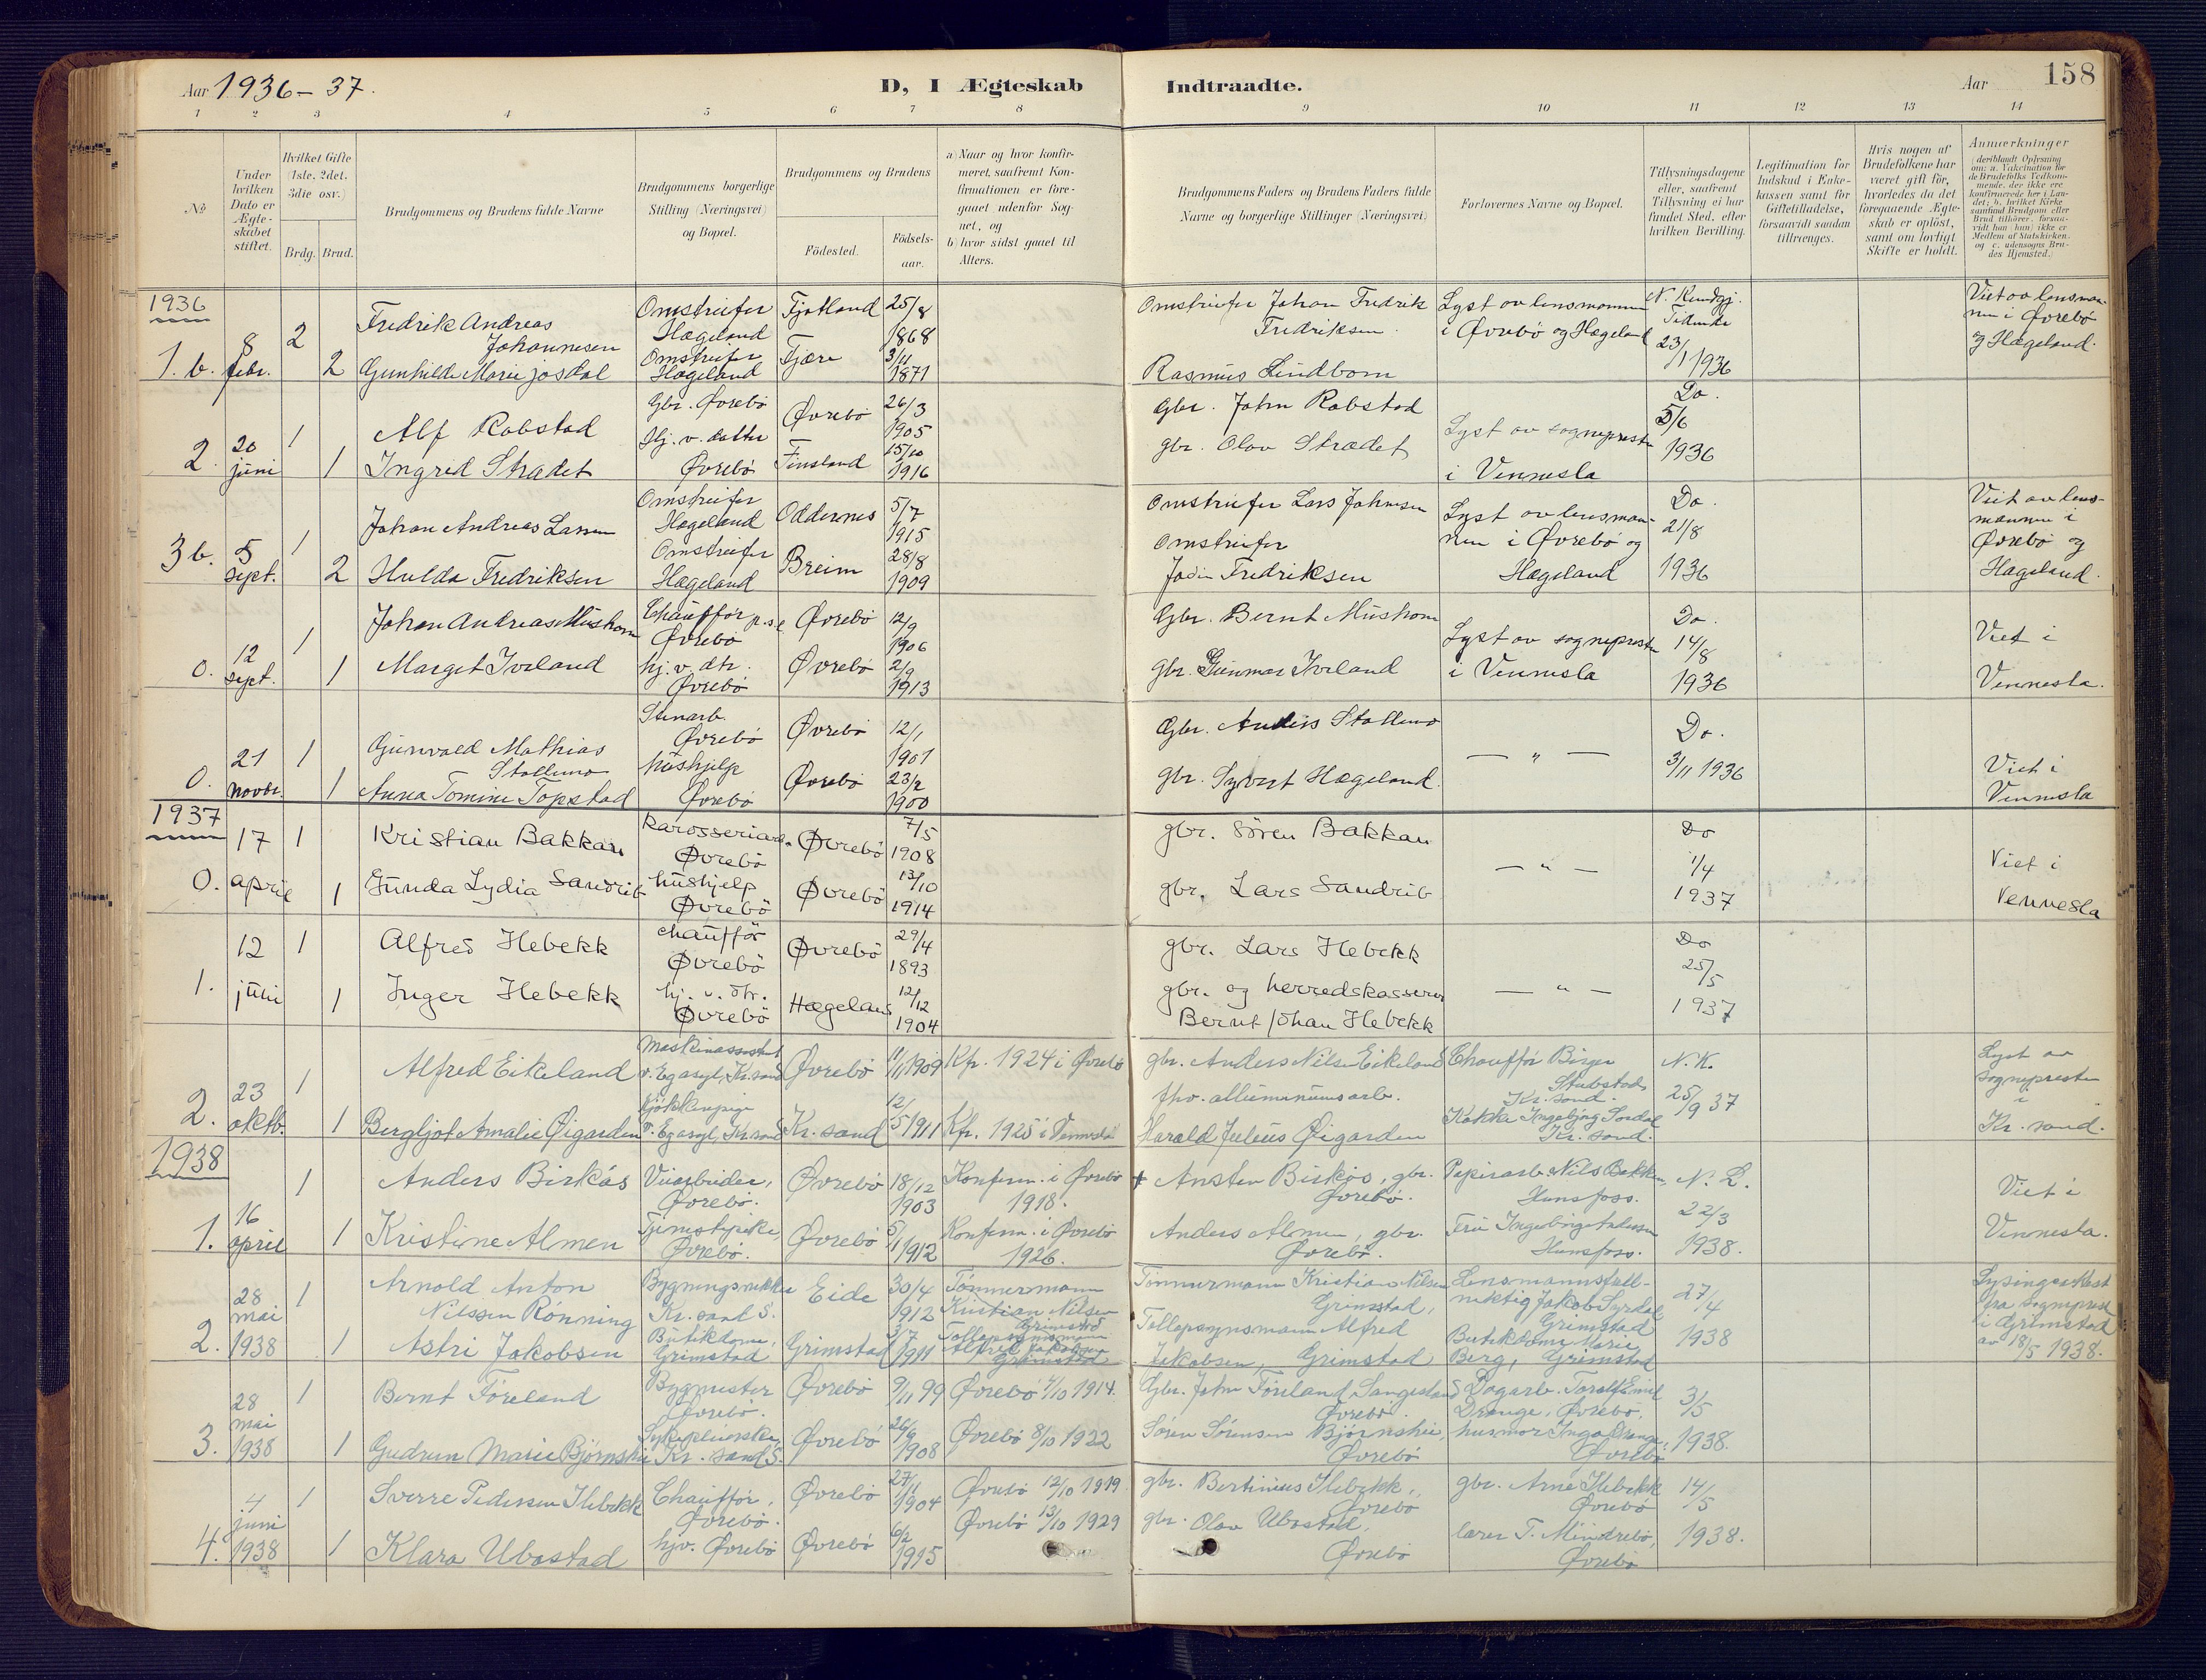 Aar 1936-37.
D, I Ægteskab Indtraadte.
Aar 158
1 2 3 4 5 6 7 8 9 10 11 12 13 14
№
Under hvilken Dato er Ægteskabet stiftet.
Hvilket Gifte (1ste, 2det, 3die osv.)
Brdg. Brud.
Brudgommens og Brudens fulde Navne
Brudgommens borgerlige Stilling (Næringsvei) og Bopæl.
Brudgommens og Brudens
Födested.
Födsels-aar.
a) Naar og hvor konfir-
meret, saafremt Kon-
firmationen er fore-
gaaet udenfor Sog-
net, og
b) hvor sidst gaaet til
Alters.
Brudgommens Faders og Brudens Faders fulde
Navne og borgerlige Stillinger (Næringsvei)
Forlovernes Navne og Bopæl.
Tillysningsdagene
eller, saafremt
Tillysning ei har
fundet Sted, efter
hvilken Bevilling.
Legitimation for
Indskud i Enke-
kassen samt for
Giftetilladelse,
forsaavidt saadan
tiltrænges.
Hvis nogen af
Brudefolkene har
været gift för,
hvorledes da det
foregaaende Ægte-
skab er oplöst,
samt om lovligt
Skifte er holdt.
Anmærkninger
1936
1.b. 8 febr. 2 Fredrik Andreas Johannesen Omstreifer Hægeland Fjotland 25/8 1868 Omstreifer Johan Fredrik Fredriksen. Lyst av lensmannen i Øvrebö og Hægeland N. Kundgj. Tidende 23/1 1936 Viet av lensmannen i Øvrebö og Hægeland.
2 Gunhilde Marie Josdal Omstreifer Hægeland Fjære 3/11 1871 Rasmus Lindbom
2. 20 juni 1 Alf Robstad Gbr. Øvrebö Øvrebö 26/3 1905 Gbr. John Robstad Lyst av sogneprest i Vennesla Do. 5/6 1936
1 Ingrid Strædet Hj. v. datter Øvrebö Finsland 15/10 1916 gbr. Olav Strædet
3b. 5 sept. 1 Johan Andreas Larsen Omstreifer Hægeland Oddernes 5/7 1915 Omstreifer Lars Johnsen Lyst av lensmannen i Øvrebö og Hægeland Do. 21/8 1936 Viet av lensmannen i Øvrebö og Hægeland.
2 Hulda Fredriksen Omstreifer Hægeland Breim 28/8 1909 Omstreifer Fredriksen
0. 12 sept. 1 Johan Andreas Mushom Chauffør Øvrebö Øvrebö 12/9 1906 Gbr. Bernt Mushom Lyst av sogneprest i Vennesla Do. 14/8 1936 Viet i Vennesla.
1 Marget Iveland hj. v. dtr. Øvrebö Øvrebö 2/9 1913 gbr. Gunnar Iveland
0. 21 novbr. 1 Gunvald Mathias Stallemo Stenarb. Øvrebö Øvrebö 12/1 1901 Gbr. Anders Stallemo — " — Do. 3/11 1936 Viet i Vennesla
1 Anna Tomine Topstad hushjelp Øvrebö Øvrebö 23/2 1900 gbr. Syvert Hægeland.
1937
0. 17 april 1 Kristian Bakkan Karosseriarb. Øvrebö Øvrebö 7/5 1908 gbr. Sören Bakkan — " — Do 1/4 1937 Viet i Vennesla
1 Gunda Lydia Sandrib hushjelp Øvrebö Øvrebö 13/10 1914 gbr. Lars Sandrib
1. 12 juni 1 Alfred Hebekk chauffør Øvrebö Øvrebö 29/4 1893 gbr. Lars Hebekk — " — Do 25/5 1937
1 Inger Hebekk hj. v. dtr. Øvrebö Hægeland 12/12 1904 gbr. og herredskasserer Bernt Johan Hebekk
2. 23 oktb. 1 Alfred Eikeland Maskinassistent v. Eg asyl, Kr.sand Øvrebö 11/11 1909 Kf. 1924 i Øvrebö gbr. Anders Nilsen Eikeland Chauffør Birger Stubstad Kr. sand. N. K. 25/9 37 Lyst av sognepresten i Kr. sand.
1 Bergljot Amalie Øigarden Kjøkkenpige v. Eg asyl, Kr.sand Kr. sand 12/5 1911 Kf. 1925 i Vennesla fhv. alluminiumsarb. Harald Julius Øigarden Kokke Ingebjørg Sordal Kr. sand.
1938
1. 16 april 1 Anders Birkås Veiarbeider, Øvrebö. Øvrebö 18/12 1903 Konferm. i Øvrebö 1918. + Ansten Birkås, gbr. Øvrebö. Papirarb. Nils Bakken, Hunsfoss. N. L. 22/3 1938. Viet i Vennesla.
1 Kristine Almen Tjenestepike, Øvrebö. Øvrebö 5/1 1912 Konferm. i Øvrebö 1926. Anders Almen, gbr. Øvrebö. Fru Ingeborg Andersen Hunsfoss.
2. 28 mai 1938 1 Arnold Anton Nilssen Rönning Bygningssnekker Kr. sand S. Eide 30/4 1912 Tömmermann Kristian Nilsen Grimstad Tömmermann Kristian Nilsen Grimstad, Lensmannsfullmektig Jakob Syrdal Grimstad 27/4 1938 Lysingsattest fra sogneprest i Grimstad av 18/5 1938.
1 Astri Jakobsen Butikdame, Grimstad Grimstad 3/7 1911 Tolloppsynsmann Alfred Jakobsen Grimstad Tolloppsynsmann Alfred Jakobsen, Grimstad Butikdame Marie Berg, Grimstad
3. 28 mai 1938 1 Bernt Föreland Bygmester Øvrebö. Øvrebö 9/11 99 Øvrebö 4/10 1914. Gbr. John Föreland, Sangesland Øvrebö. Dagarb. Toralf Emil Drange, Øvrebö, 3/5 1938.
1 Gudrun Marie Björnshei Sykepleierske, Kr. sand S. Øvrebö 26/9 1908 Øvrebö 8/10 1922 Sören Sörensen Björnshei, Øvrebö husmor Inga Drange, Øvrebö
4. 4 juni 1938 1 Sverre Pedersen Hebekk Chauffør, Øvrebö. Øvrebö 27/1 1904 Øvrebö 12/10 1919. gbr. Bertinius Hebekk, Øvrebö gbr. Arne Hebekk Øvrebö 14/5 1938.
1 Klara Ubostad hjv. Øvrebö Øvrebö 6/2 1915 Øvrebö 13/10 1929 gbr. Olav Ubostad, Øvrebö lærer T. Mindrebö, Øvrebö